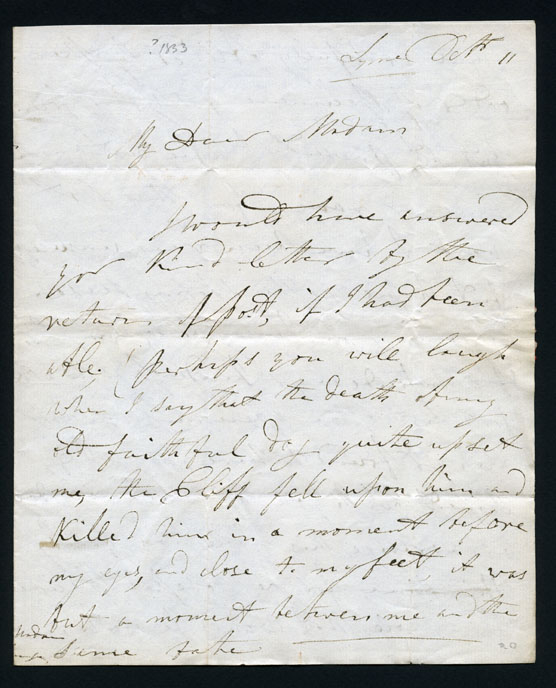 ? 1833
Lyme Octr 11
My Dear Madam
I would have answered
yor kind letter by the
return of post, if I had been
able. perhaps you will laugh
when I say that the death of my
old faithful dog quite upset
me, the Cliff fell upon him and
Killed him in a moment before
my eyes, and close to my feet, it was
but a moment between me and the
same fate